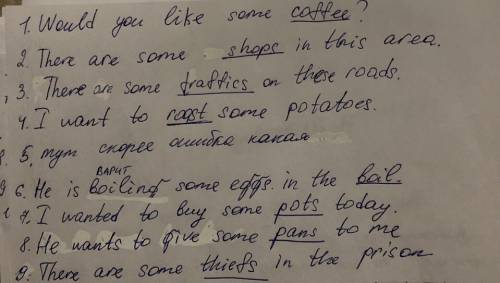 1. Would you like some coffee?
2. There are some shops in this area.
3. There are some traffics on these roads.
4. I want to roast some potatoes.
5. тут скорее ошибка какая
ВАРИТ
6. He is boiling some eggs. in the boil.
7. I wanted to buy some pots today.
8. He wants to give some pans to me
9. There are some thiefs in the prison